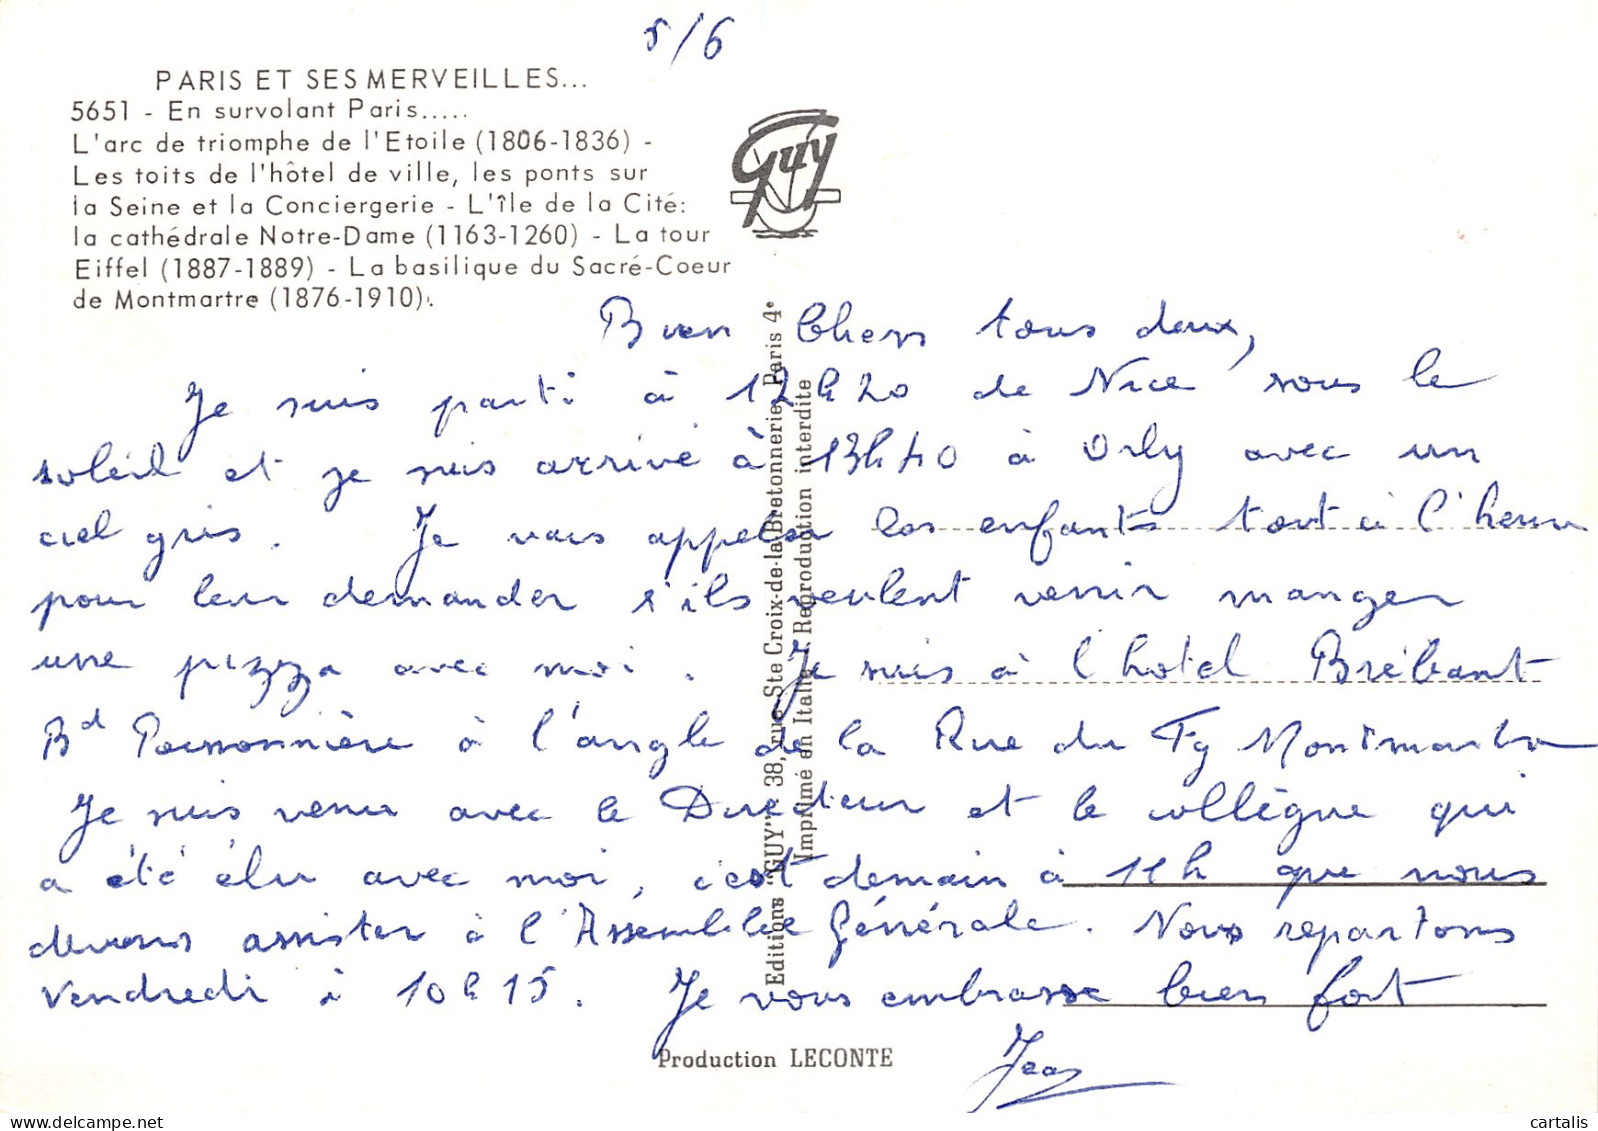 5/6
PARIS ET SES MERVEILLES...
5651 - En survolant Paris.....
L'arc de triomphe de l'Etoile (1806-1836) -
Les toits de l'hôtel de ville, les ponts sur
la Seine et la Conciergerie - L'île de la Cité:
la cathédrale Notre-Dame (1163-1260) - La tour
Eiffel (1887-1889) - La basilique du Sacré-Coeur
de Montmartre (1876-1910).
Guy
Bien Chers tous deux,
Je suis parti à 12h20 de Nice sous le
soleil et je suis arrivé à 13h40 à Orly avec un
ciel gris. Je vais appeler les enfants tout à l'heure
pour leur demander s'ils veulent venir manger
une pizza avec moi. Je suis à l'hotel Brébant
Bd Poissonnière à l'angle de la Rue du Fg Montmartre
Je suis venu avec le Directeur et le collègue qui
a été élu avec moi, c'est demain à 11h que nous
devons assister à l'Assemblée Générale. Nous repartons
Vendredi à 10h15. Je vous embrasse bien fort
Jean
Editions "GUY" - 38, rue Ste Croix-de-la-Bretonnerie, Paris 4e
Imprimé en Italie - Reproduction interdite
Production LECONTE
cartalis